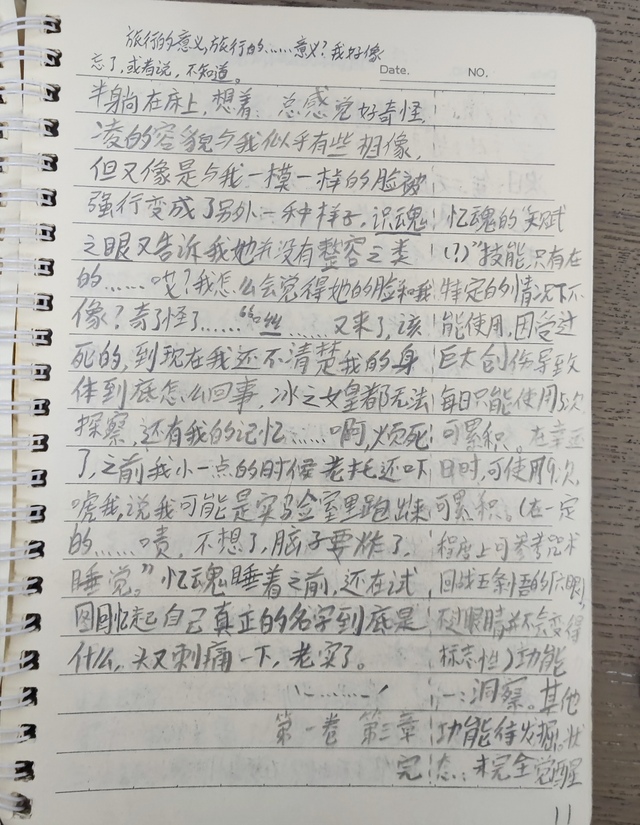 旅行的意义,旅行的……意义?我好像
忘了,或者说,不知道。
Date.
NO.
半躺在床上,想着:总感觉好奇怪,
凌的容貌与我似乎有些相像,
但又像是与我一模一样的脸被
强行变成了另外一种样子,识魂
之眼又告诉我她并没有整容之类
的……哎?我怎么会觉得她的脸和我
像?奇了怪了…… ……又来了,该
死的,到现在我还不清楚我的身
体到底怎么回事,冰之女皇都无法
探察,还有我的记忆……啊,烦死
了,之前我小一点的时候老托还吓
唬我,说我可能是实验室里跑出来
的……啧,不想了,脑子要炸了,
睡觉。”忆魂睡着之前,还在试
图回忆起自己真正的名字到底是
什么,头又刺痛一下,老实了。
第一卷 第三章
完
忆魂的“天赋
(?)”技能,只有在
特定的情况下才
能使用,因受过
巨大创伤导致
每日只能使用5次
可累积。在幸运
日时,可使用9次,
可累积。(在一定
程度上可参考咒术
回战五条悟的六眼,
不过眼睛并不会变得
标志性)功能
一:洞察。其他
功能待发掘。状
态:未完全觉醒
11